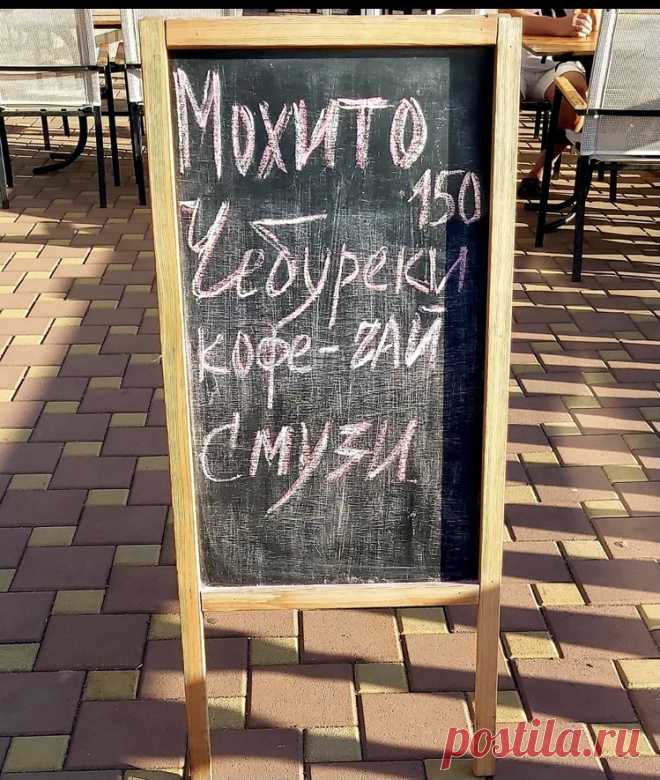 Мохито
150
Чебуреки
кофе-чай
смузи
postila.ru